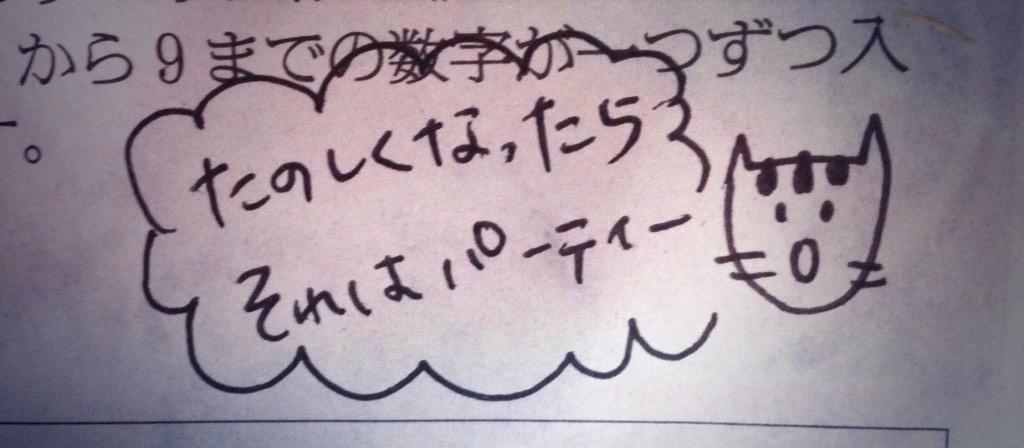 から9までの数字が一つずつ入
。
たのしくなったら
それはパーティー